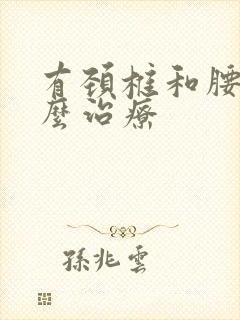 有颈椎和腰
麽治療
孫兆雲